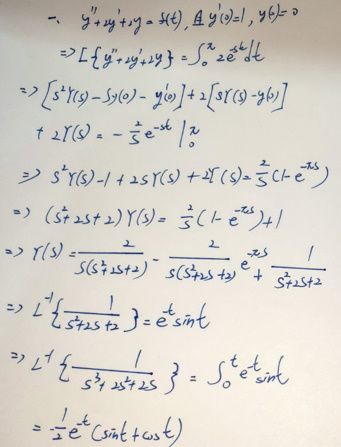 一、y''+2y'+2y=f(t), 且y'(0)=1, y(0)=0
⇒ L{y''+2y'+2y} = ∫₀^π 2e^{-st}dt
⇒ [s²Y(s)-Sy(0)-y'(0)]+2[SY(s)-y(0)]
+ 2Y(s) = -2/s e^{-st} |₀^π
⇒ s²Y(s)-1+2sY(s)+2Y(s)=2/s(1-e^{-πs})
⇒ (s²+2s+2)Y(s)= 2/s(1-e^{-πs})+1
⇒ Y(s)= 2/(s(s²+2s+2)) - 2/(s(s²+2s+2)) e^{-πs} + 1/(s²+2s+2)
⇒ L⁻¹{1/(s²+2s+2)}=e^{-t}sint
⇒ L⁻¹{1/(s³+2s²+2s)} = ∫₀^t e^{-t}sint
= -1/2 e^{-t}(sint+cost)